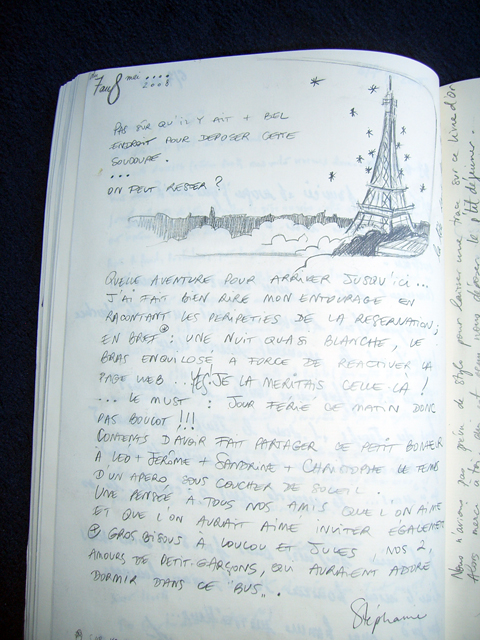 7 au 8 mai ....
2008
PAS SÛR QU'IL Y AIT + BEL
ENDROIT POUR DEPOSER CETTE
SOUCOUPE.
...
ON PEUT RESTER ?
QUELLE AVENTURE POUR ARRIVER JUSQU'ICI ...
J'AI FAIT BIEN RIRE MON ENTOURAGE EN
RACONTANT LES PERIPETIES DE LA RESERVATION ;
EN BREF : UNE NUIT QUASI BLANCHE, LE
BRAS ENQUILOSÉ A FORCE DE REACTIVER LA
PAGE WEB ... YES! JE LA MERITAIS CELLE LA !
... LE MUST : JOUR FERIÉ CE MATIN DONC
PAS BOULOT !!!
CONTENTS D'AVOIR FAIT PARTAGER CE PETIT BONHEUR
A LEO + JERÔME + SANDRINE + CHRISTOPHE LE TEMPS
D'UN APERO SOUS COUCHER DE SOLEIL.
UNE PENSÉE A TOUS NOS AMIS QUE L'ON AIME
ET QUE L'ON AURAIT AIMÉ INVITER ÉGALEMENT
+ GROS BISOUS A LOULOU ET JULES, NOS 2
AMOURS DE PETIT-GARÇONS, QUI AURAIENT ADORÉ
DORMIR DANS CE "BUS".
Stéphane
Nous n'avons pas de stylo pour laisser une trace sur ce livre d'or